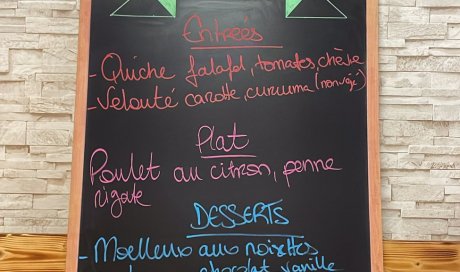 Entrées
- Quiche falafel, tomates, chèvre
- Velouté carotte, curcuma (non végé)
Plat
Poulet au citron, penne
rigate
DESSERTS
- Moelleux aux noisettes
chocolat vanille